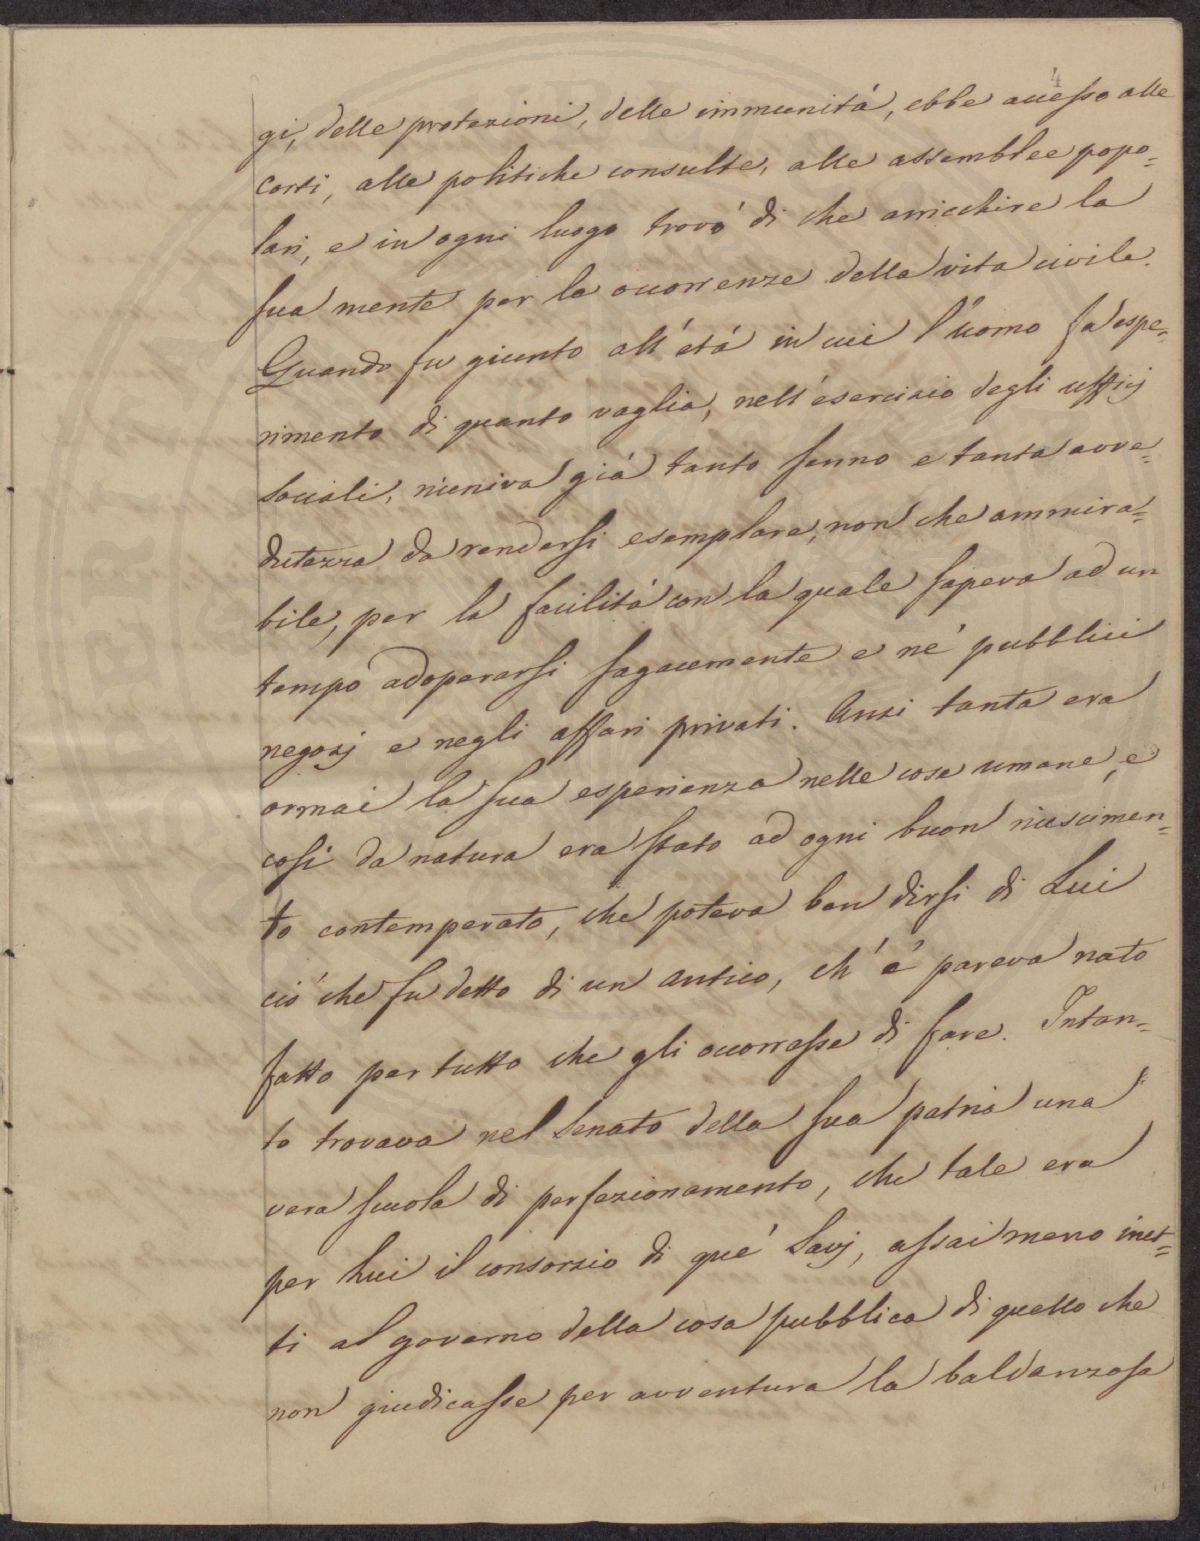 4
gi, delle protezioni, delle immunitá, ebbe accesso alle
corti, alle politiche consulte, alle assemblee popo=
lari, e in ogni luogo trovó di che arricchire la
sua mente per le occorrenze della vita civile.
Quando fu giunto all'etá in cui l'uomo fa espe=
rimento di quanto vaglia, nell'esercizio degli ufficj
sociali, riuniva giá tanto senno e tanta avve=
dutezza da rendersi esemplare, non che ammira=
bile, per la facilitá con la quale sapeva ad un
tempo adoperarsi sagacemente e né pubblici
negozj e negli affari privati. Anzi tanta era
ormai la sua esperienza nelle cose umane, e
cosí da natura era stato ad ogni buon riuscimen=
to contemperato, che poteva ben dirsi di Lui
ció che fu detto di un antico, ch'é pareva nato
fatto per tutto che gli occorresse di fare. Intan=
to trovava nel Senato della sua patria una
vera scuola di perfezionamento, che tale era
per Lui il consorzio di qué Savj, assai meno inet=
ti al governo della cosa pubblica di quello che
non giudicasse per avventura la baldanzosa